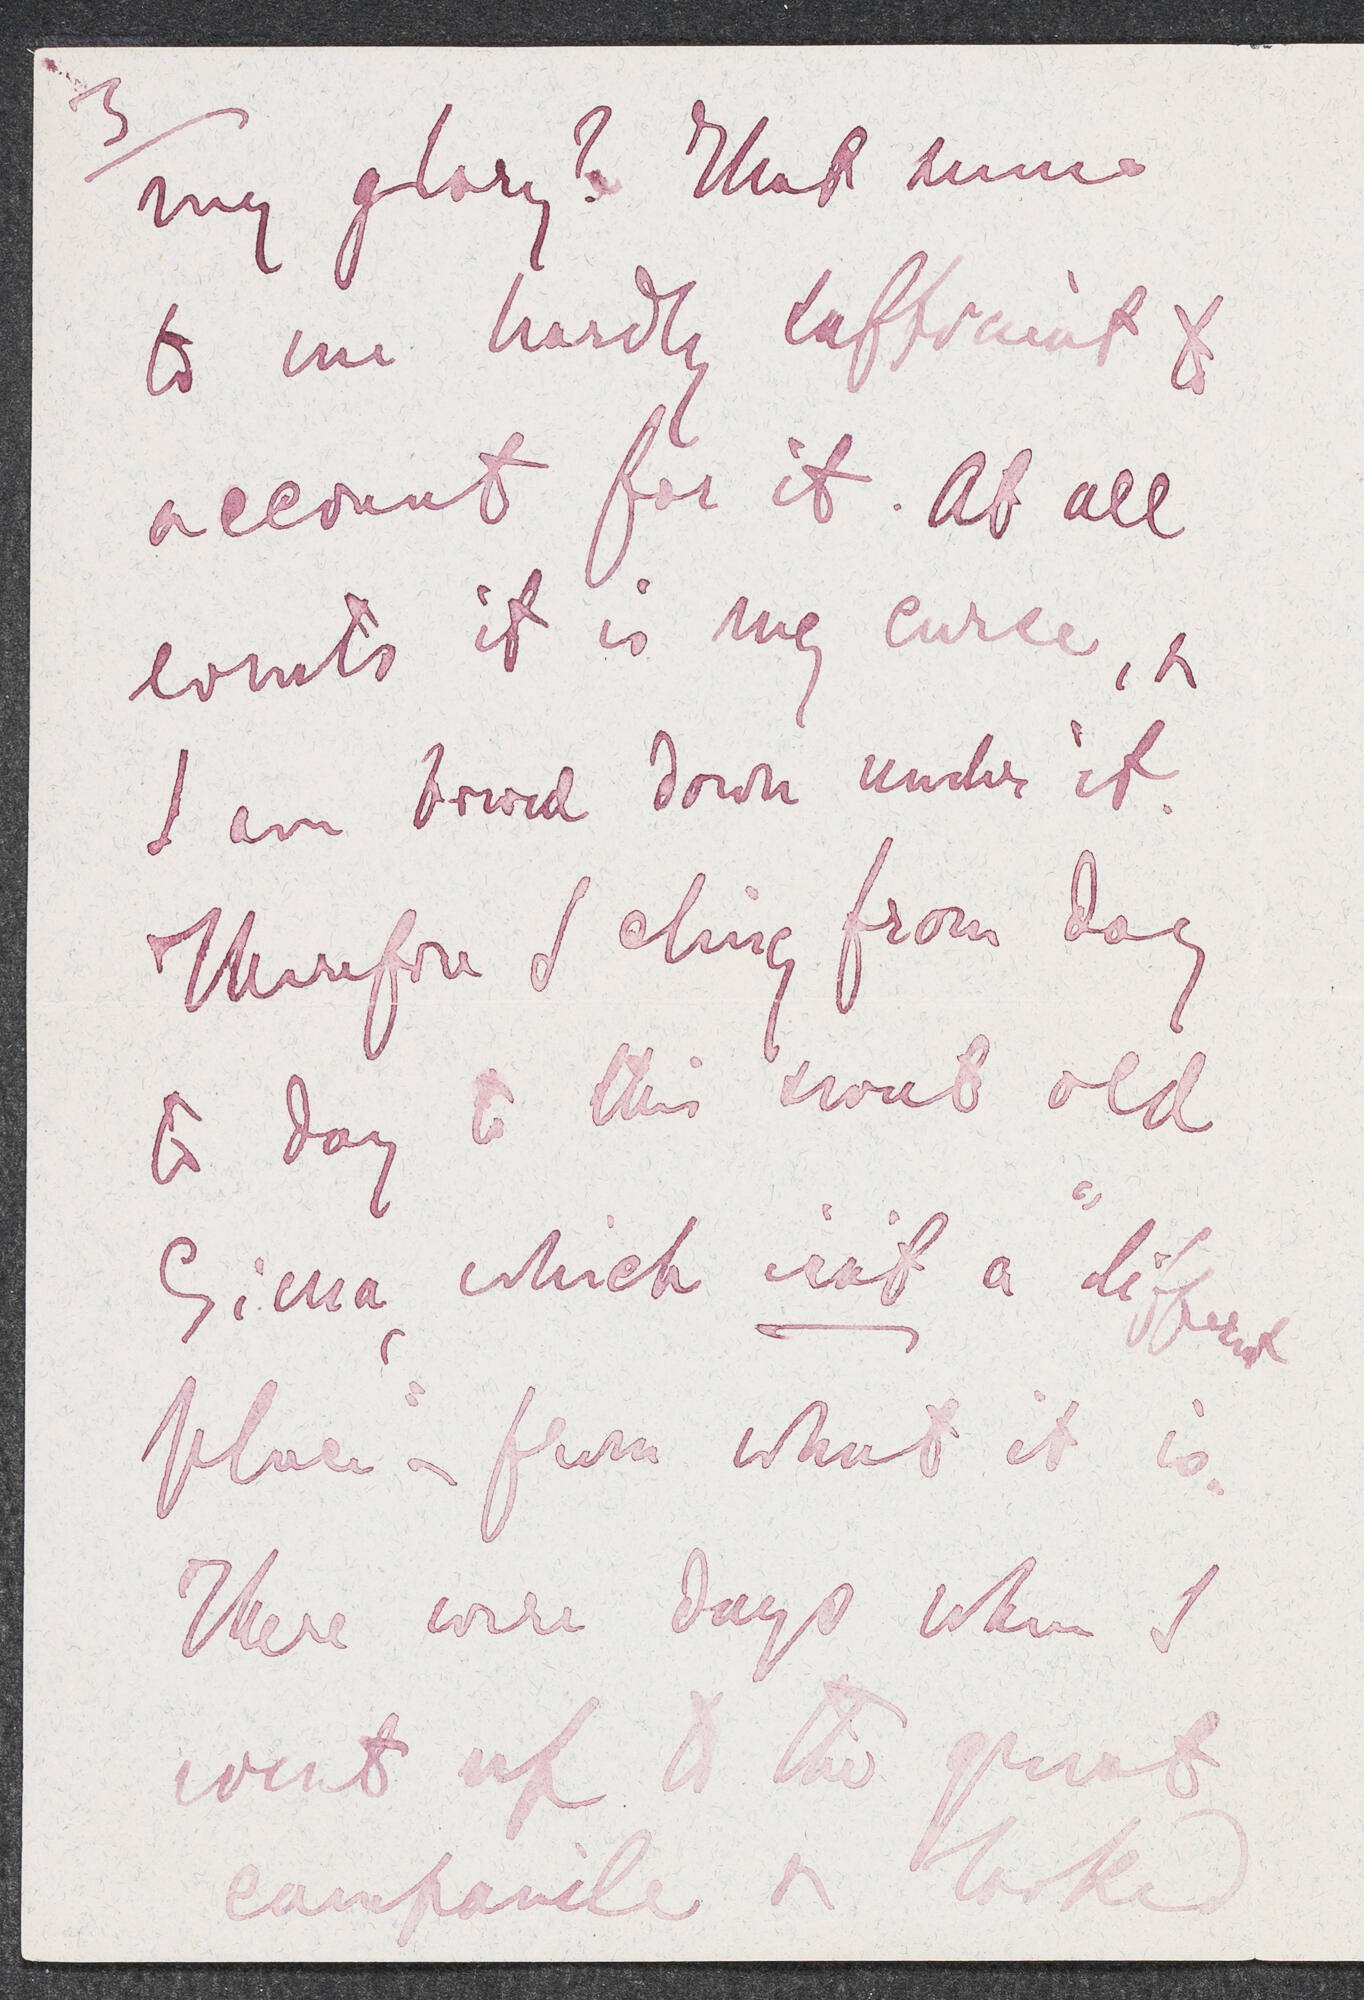 3/
my glory? That seems
to me hardly sufficient to
account for it. At all
events it is my curse, &
I am bowed down under it.
Therefore I cling from day
to day to this sweet old
Siena, which isn't a "different
place" from what it is.
There were days when I
went up to the great
campanile & looked